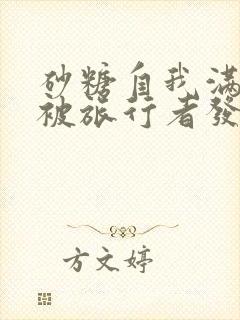 砂糖自我滿
被旅行者發
方文婷